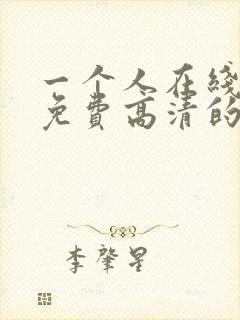 一个人在线
免费高清的
李肇星